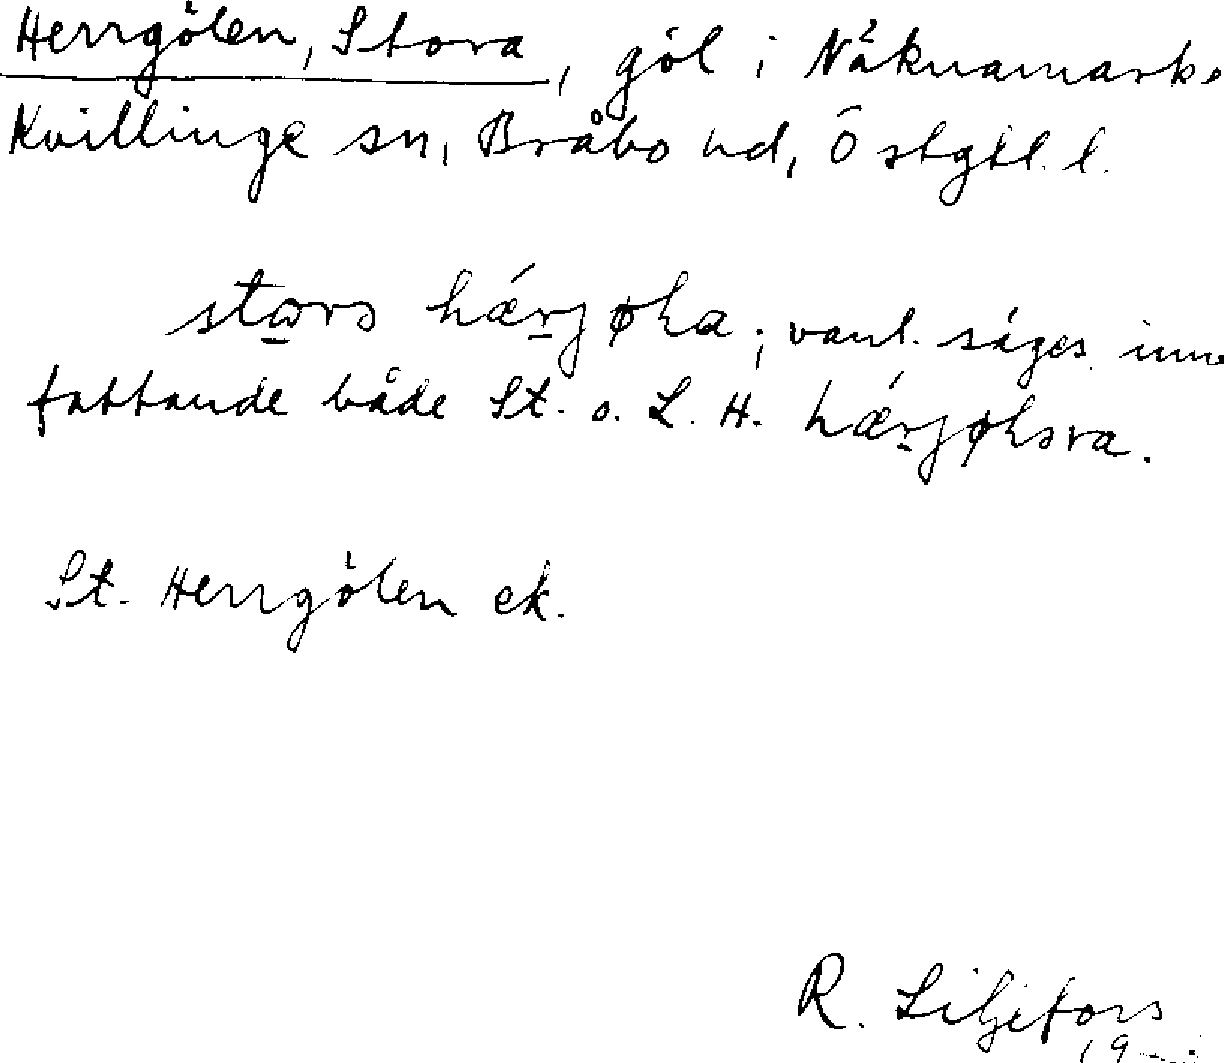 Herrgölen, Stora, göl i Näknamark,
Kvillinge sn, Bråbo hd, Östgtl. l.
hǽrjøka; vanl. säges inne
fattande både St. o. L. H. hǽrjøkəra.
St. Herrgölen ek.
R. Liljefors